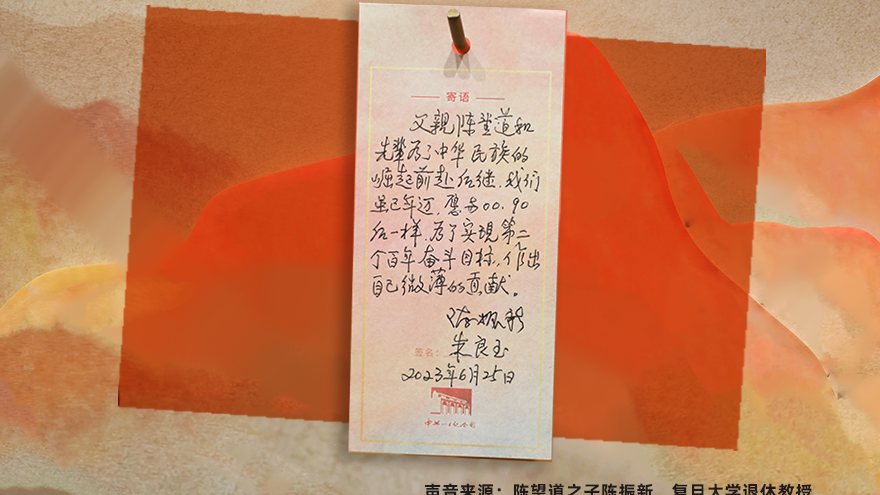 寄语
父亲陈望道和
先辈为了中华民族的
崛起前赴后继,我们
虽已年迈,愿与00.90
后一样,为了实现第二
个百年奋斗目标,作出
自己微薄的贡献。
陈振新
签名:朱良玉
2023年6月25日
声音来源:陈望道之子陈振新 复旦大学退休教授